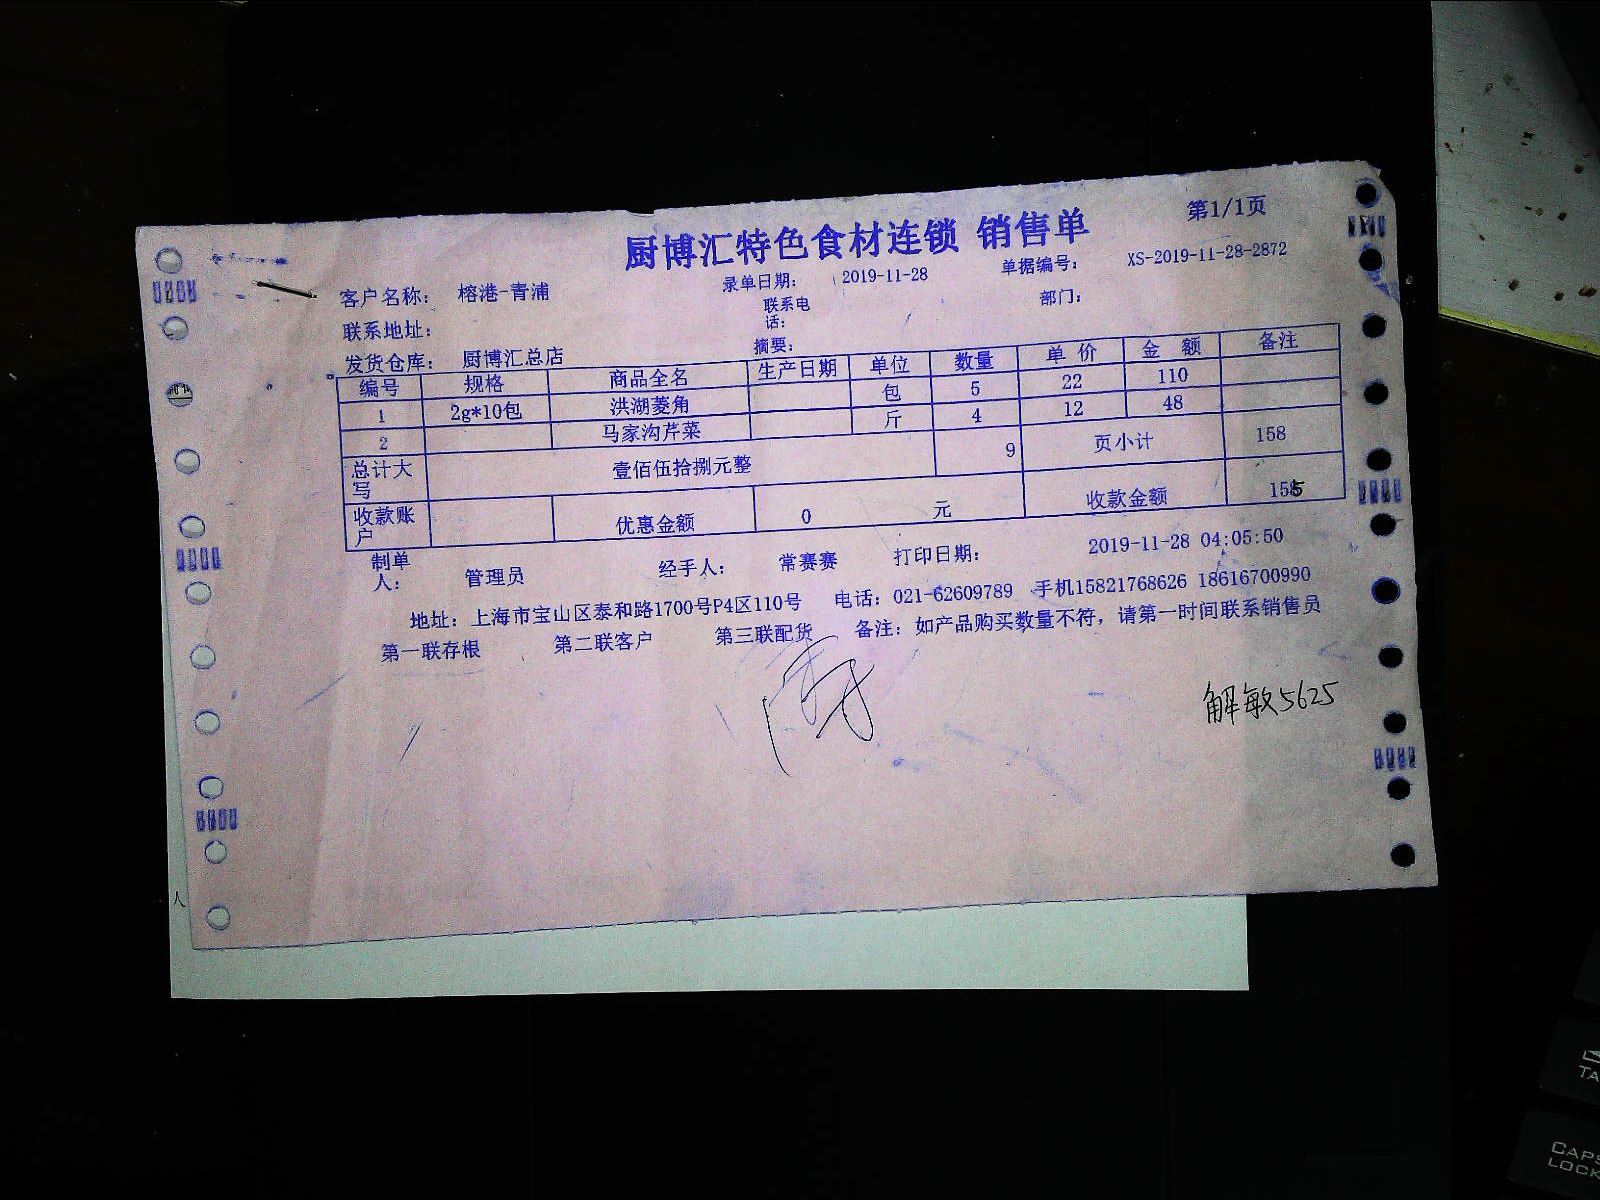 厨博汇特色食材连锁 销售单 第1/1页
客户名称： 榕港-青浦 录单日期： 2019-11-28 单据编号： XS-2019-11-28-2872
联系地址： 联系电话： 部门：
发货仓库： 厨博汇总店 摘要：
编号 规格 商品全名 生产日期 单位 数量 单 价 金 额 备注
1 2g*10包 洪湖菱角 包 5 22 110
2 马家沟芹菜 斤 4 12 48
总计大写 壹佰伍拾捌元整 9 页小计 158
收款账户 优惠金额 0 元 收款金额
制单人： 管理员 经手人： 常赛赛 打印日期： 2019-11-28 04:05:50
地址：上海市宝山区泰和路1700号P4区110号 电话：021-62609789 手机15821768626 18616700990
第一联存根 第二联客户 第三联配货 备注：如产品购买数量不符，请第一时间联系销售员
解敏5625
TA
CAPS
LOCK